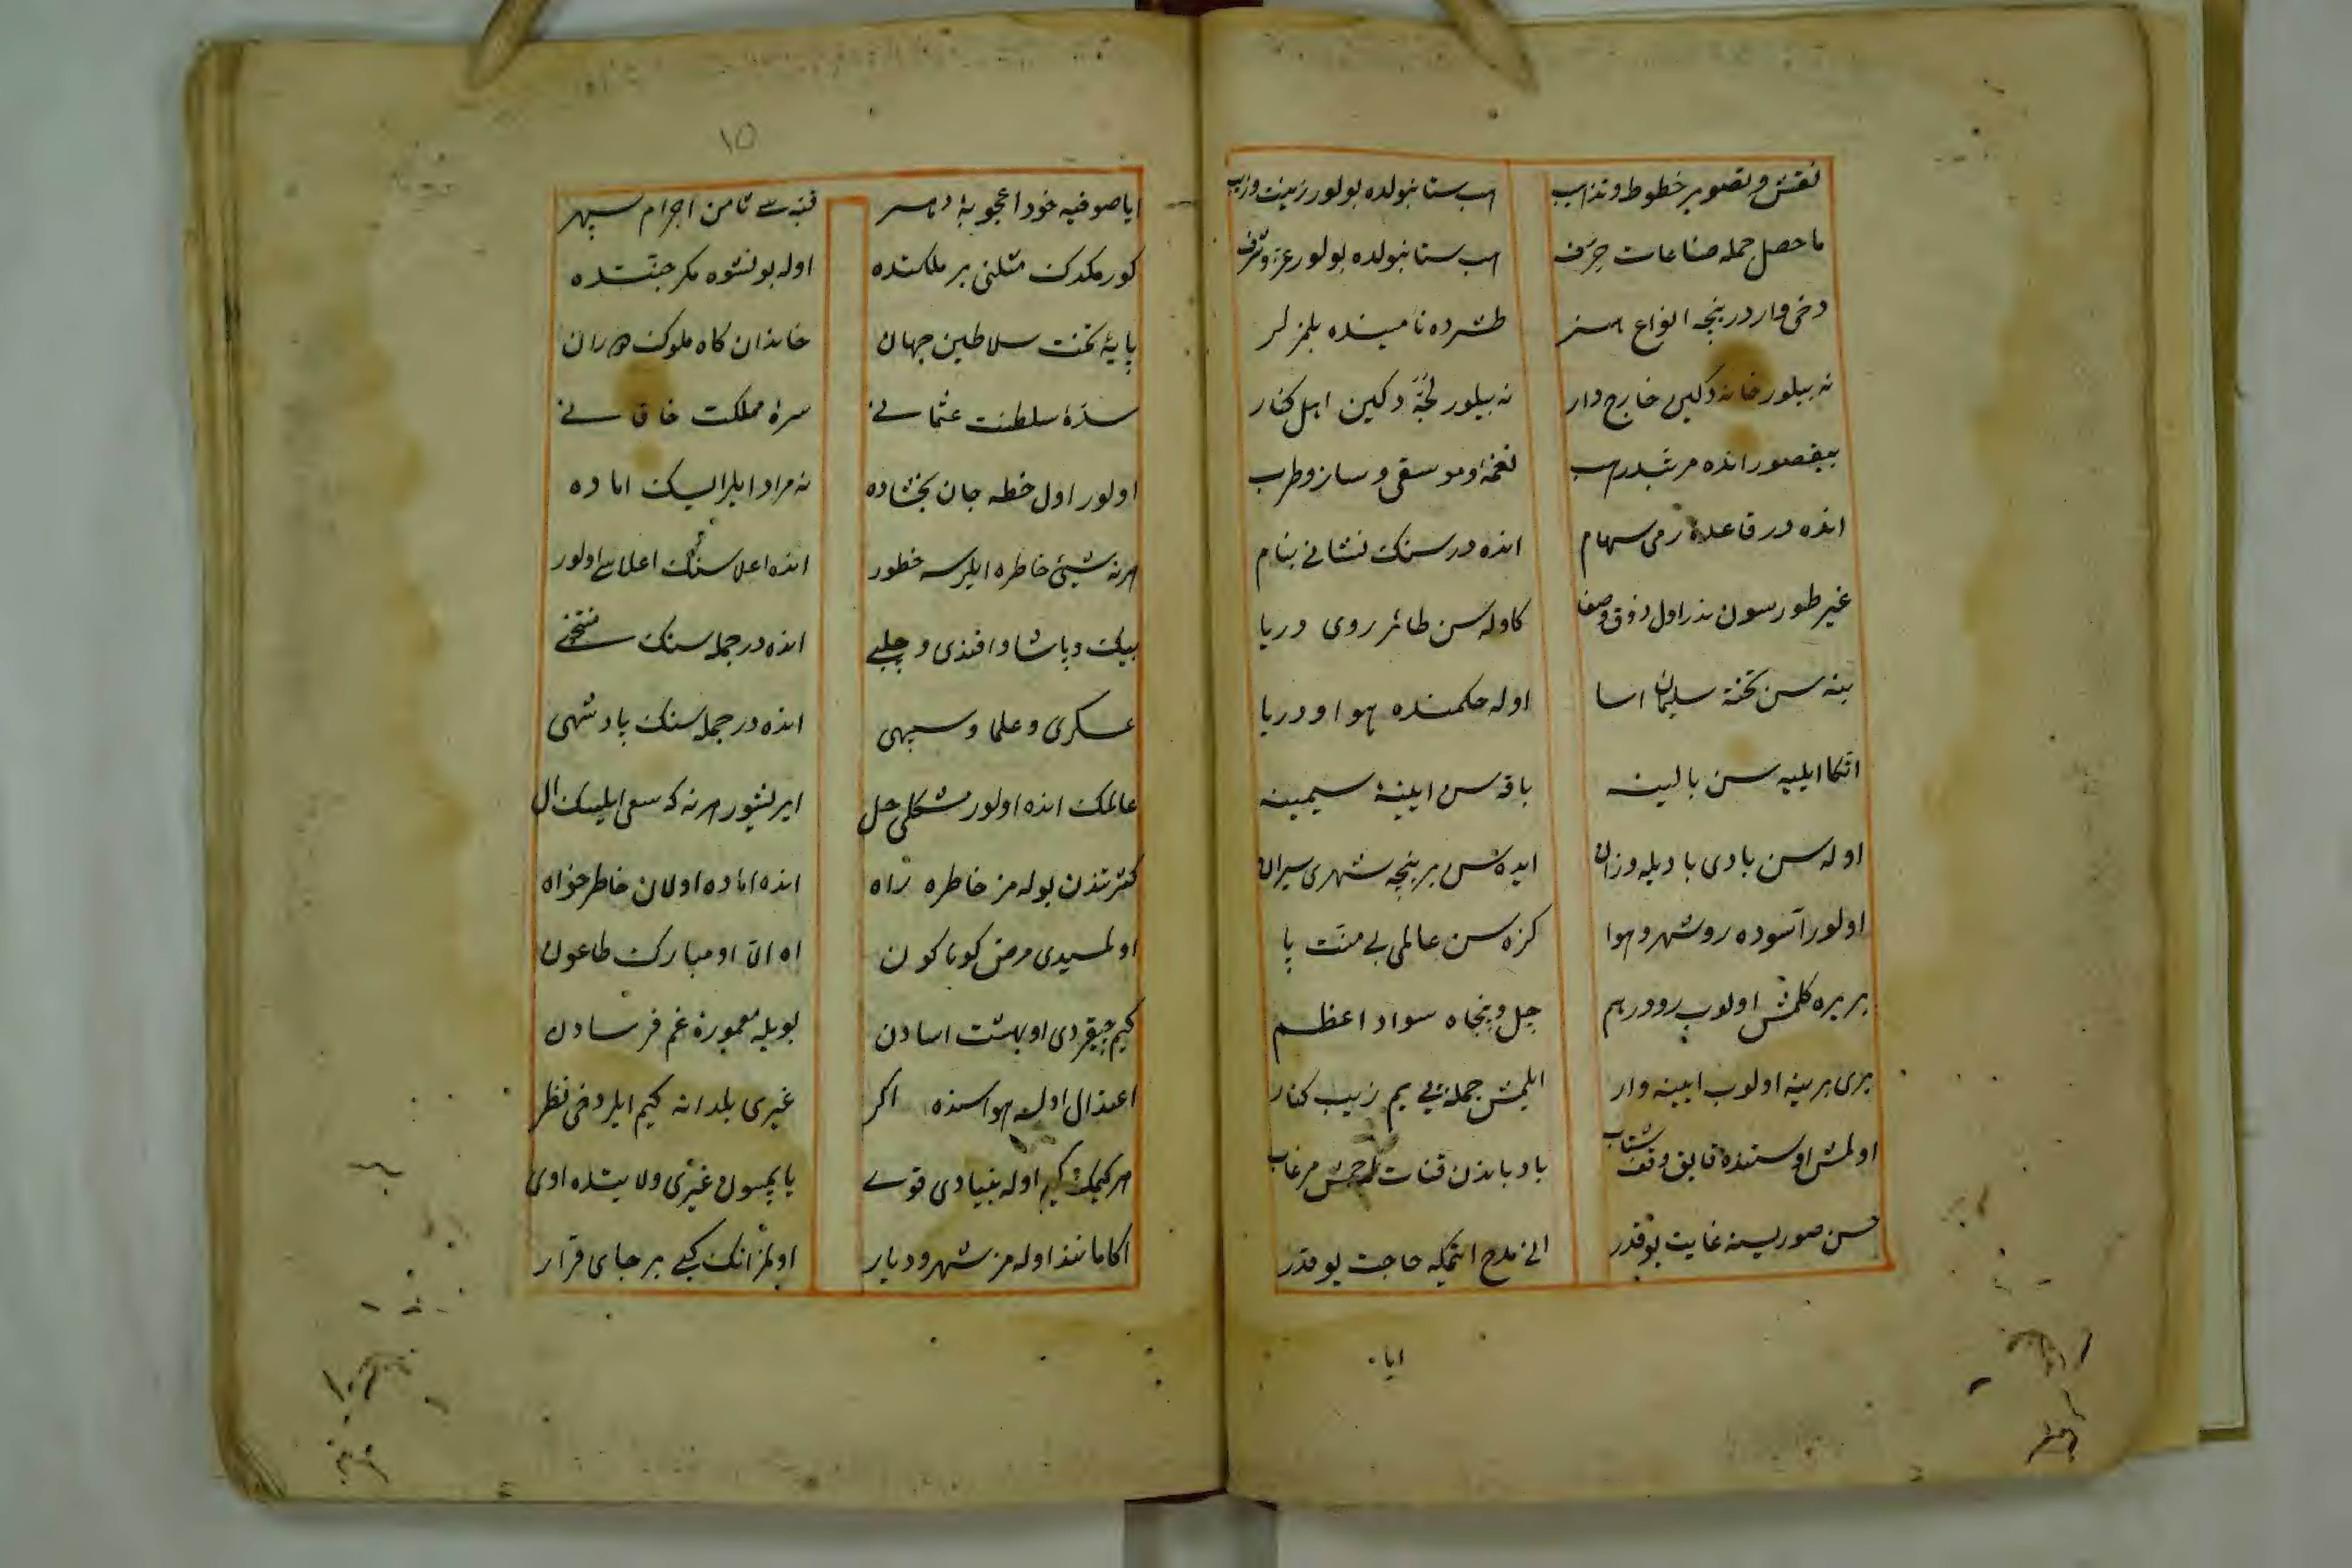 نقش و تصویر خطوط و تذهیب
هب ستانبولده بولور زینت و زیب
ماحصل جمله صناعات حرف
هب ستانبولده بولور عز و شرف
دخی واردر نیجه انواع هنر
طشره ده نامینده بلمزلر
نه بیلور خانه دکین خارج دار
نه بیلور لجه دکین اهل کنار
بیقصور انده مرتبدر هب
نغمه و موسقی و ساز و طرب
انده در قاعدهٔ رمی سهام
انده در سنک نشانی بنام
غیر طورسون نه در اول ذوق و صفا
که اوله سن طائر روی دریا
بنه سن تخته سلیمان اسا
اوله حکمنده هوا و دریا
اتکا ایلیه سن بالینه
باقه سن ایینهٔ سیمینه
اوله سن بادی بادیله وزان
ایده سن بر نیجه شهری سیران
اولور آسوده رو شهر و هوا
کزه سن عالمی بی منت پا
بر یره کلمش اولوب رو در هم
چل و پنجاه سواد اعظم
بری برینه اولوب ایینه وار
ایلمش جمله یی یم زیب کنار
اولمش اوستنده قایق وقف شتاب
بادباندن قنات اچمش مرغاب
حسن صورینه غایت یوقدر
انی مدح اتمکه حاجت یوقدر
ایا
١٥
ایا صوفیه خود اعجوبهٔ دهر
قبه سی ثامن اجرام سپهر
کورمکدک مثلنی بر ملکتده
اوله بولنوه مکر جنتده
پایهٔ تخت سلاطین جهان
خاندان کاه ملوک دوران
سدهٔ سلطنت عثمانی
سرهٔ مملکت خاقانی
اولور اول خطه جان بخشاده
نه مراد ایلر ایسک اماده
هر نه شیئ خاطره ایلرسه خطور
انده اعلاسنک اعلاسی اولور
بیک و پاشا و افندی و چلبی
انده در جمله سنک منتخبی
عسکری و علما و سپهی
انده در جمله سنک پادشهی
عالمک انده اولور مشکلی حل
ایریشور هر نه که سعی ایلیسک ال
کثرتدن بوله مز خاطره راه
انده اماده اولان خاطرخواه
اولمسیدی مرض کوناکون
اه ان او مبارک طاعون
کیم چیقردی او بهشت اسادن
بویله معمورهٔ غم فرسادن
اعتدال اولسه هواسنده اکر
غیری بلدانه کیم ایلر دخی نظر
هر کیمک کیم اوله بنیادی قوی
یاپمسون غیری ولایتده اوی
اکا مانند اوله مز شهر و دیار
اولمز انک کبی بر جای قرار